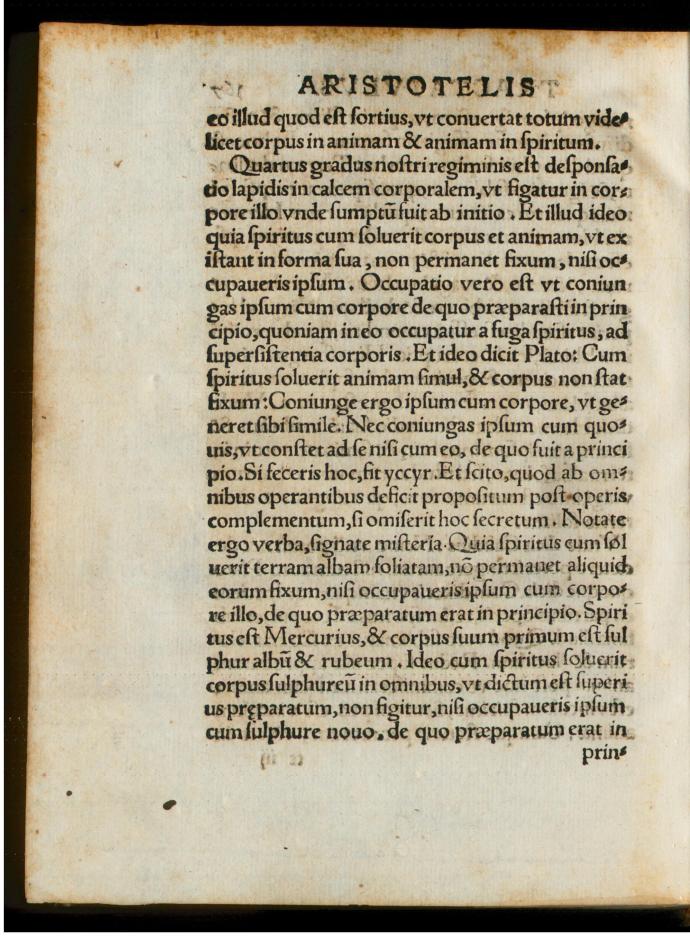 ARISTOTELIS
eo illud quod eſt fortius, vt conuertat totum vide⸗
licet corpus in animam & animam in ſpiritum.
Quartus gradus noſtri regiminis eſt deſponſa⸗
tio lapidis in calcem corporalem, vt figatur in cor⸗
pore illo vnde ſumptũ fuit ab initio. Et illud ideo
quia ſpiritus cum ſoluerit corpus et animam, vt ex
iſtant in forma ſua, non permanet fixum, niſi oc⸗
cupaueris ipſum. Occupatio vero eſt vt coniun
gas ipſum cum corpore de quo præparaſti in prin
cipio, quoniam in eo occupatur a fuga ſpiritus, ad
ſuperſiſtentia corporis. Et ideo dicit Plato: Cum
ſpiritus ſoluerit animam ſimul, & corpus non ſtat
fixum: Coniunge ergo ipſum cum corpore, vt ge⸗
neret ſibi ſimile. Nec coniungas ipſum cum quo⸗
uis, vt conſtet ad ſe niſi cum eo, de quo fuit a princi
pio. Si feceris hoc, fit yccyr. Et ſcito, quod ab om⸗
nibus operantibus deficit propoſitum poſt operis
complementum, ſi omiſerit hoc ſecretum. Notate
ergo verba, ſignate miſteria. Quia ſpiritus cum ſol
uerit terram albam foliatam, nõ permanet aliquid
eorum fixum, niſi occupaueris ipſum cum corpo⸗
re illo, de quo præparatum erat in principio. Spiri
tus eſt Mercurius, & corpus ſuum primum eſt ſul
phur albũ & rubeum. Ideo cum ſpiritus ſoluerit
corpus ſulphureũ in omnibus, vt dictum eſt ſuperi
us pręparatum, non figitur, niſi occupaueris ipſum
cum ſulphure nouo, de quo præparatum erat in
prin⸗